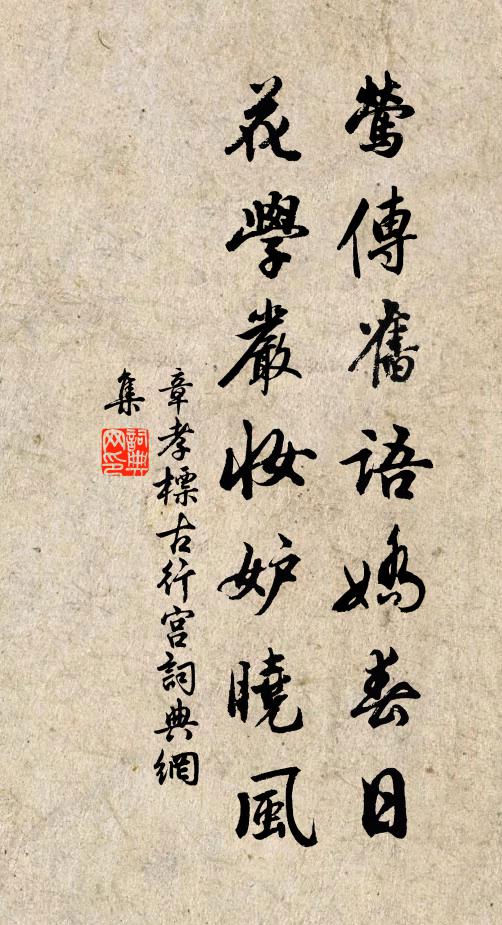 鶯傳舊語嬌春日
花學嚴妝妒曉風
章孝標古行宮詞典網
集
詞典網印